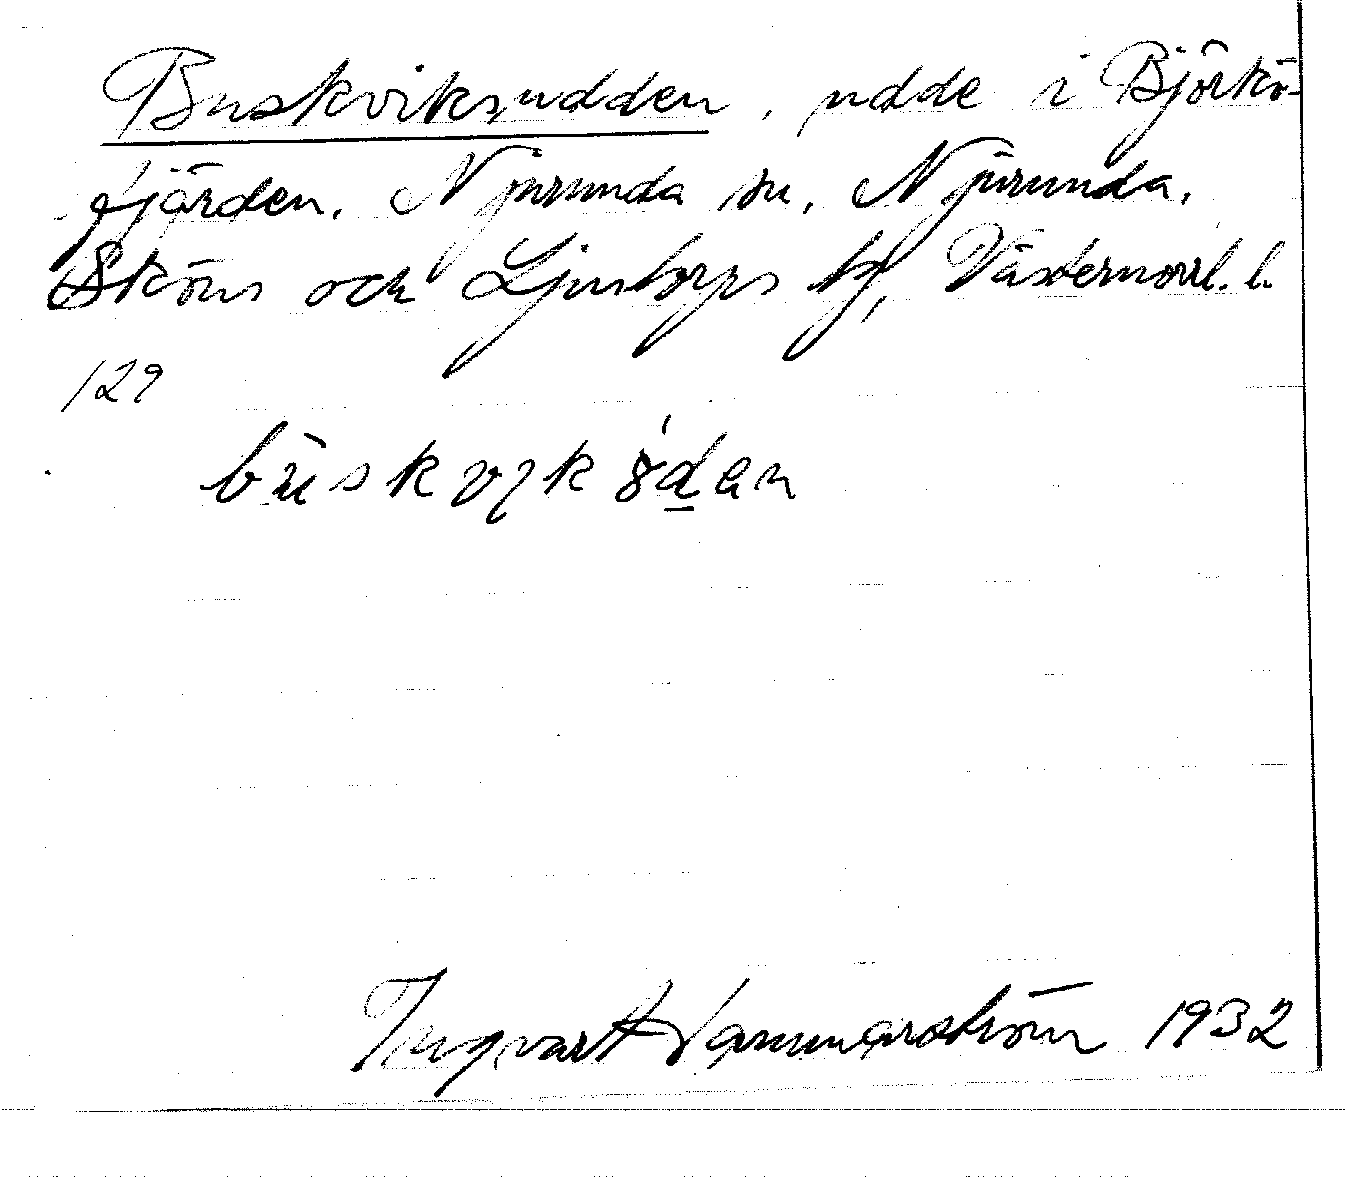 Buskviksudden, udde i Björkö-
fjärden. Njurunda sn. Njurunda,
Sköns och Ljustorps tg, Västernorrl. l.
129
Ingvart Hammarström 1932